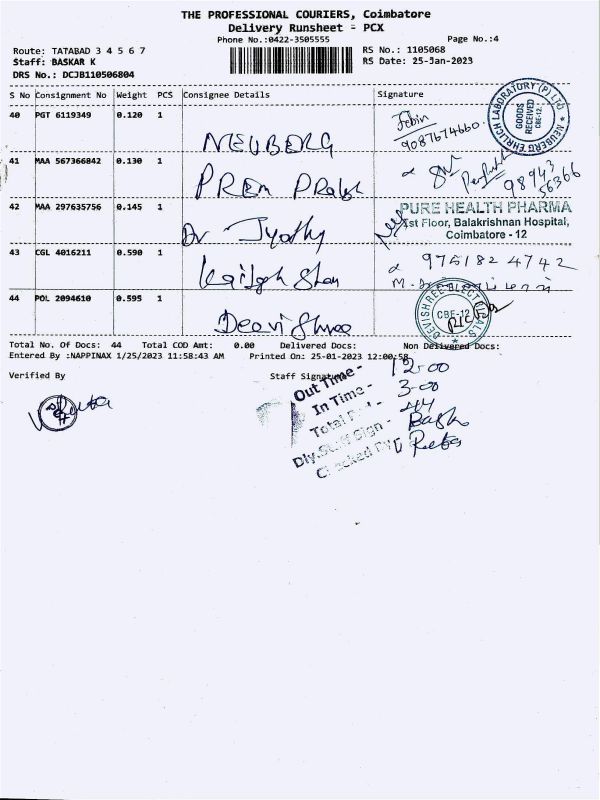 THE PROFESSIONAL COURIERS, Coimbatore
Delivery Runsheet - PCX
Phone No.:0422-3505555
Page No.:4
Route: TATABAD 3 4 5 6 7
RS No.: 1105068
Staff: BASKAR K
RS Date: 25-Jan-2023
DRS No.: DCJB110506804
S No Consignment No Weight PCS Consignee Details Signature
40 PGT 6119349 0.120 1
NEUBERG
Jebin
9087674660
NEUBERG EHRLICH LABORATORY (P) LTD
GOODS
RECEIVED
CBE-12
41 MAA 567366842 0.130 1
PREM PRakash
98943
56366
42 MAA 297635756 0.145 1
Dr Jyothy
PURE HEALTH PHARMA
1st Floor, Balakrishnan Hospital,
Coimbatore - 12
43 CGL 4016211 0.590 1
Kailash Shan
9751824742
44 POL 2094610 0.595 1
Deavi Shree
DEVISHREE ELECTRICALS
CBE-12
Total No. Of Docs: 44 Total COD Amt: 0.00 Delivered Docs: Non Delivered Docs:
Entered By :NAPPINAX 1/25/2023 11:58:43 AM Printed On: 25-01-2023 12:00:58
Verified By Staff Signature
Out Time - 12-00
In Time - 3-00
Total - 44
Dly.Staff Sign - Bask
Checked By